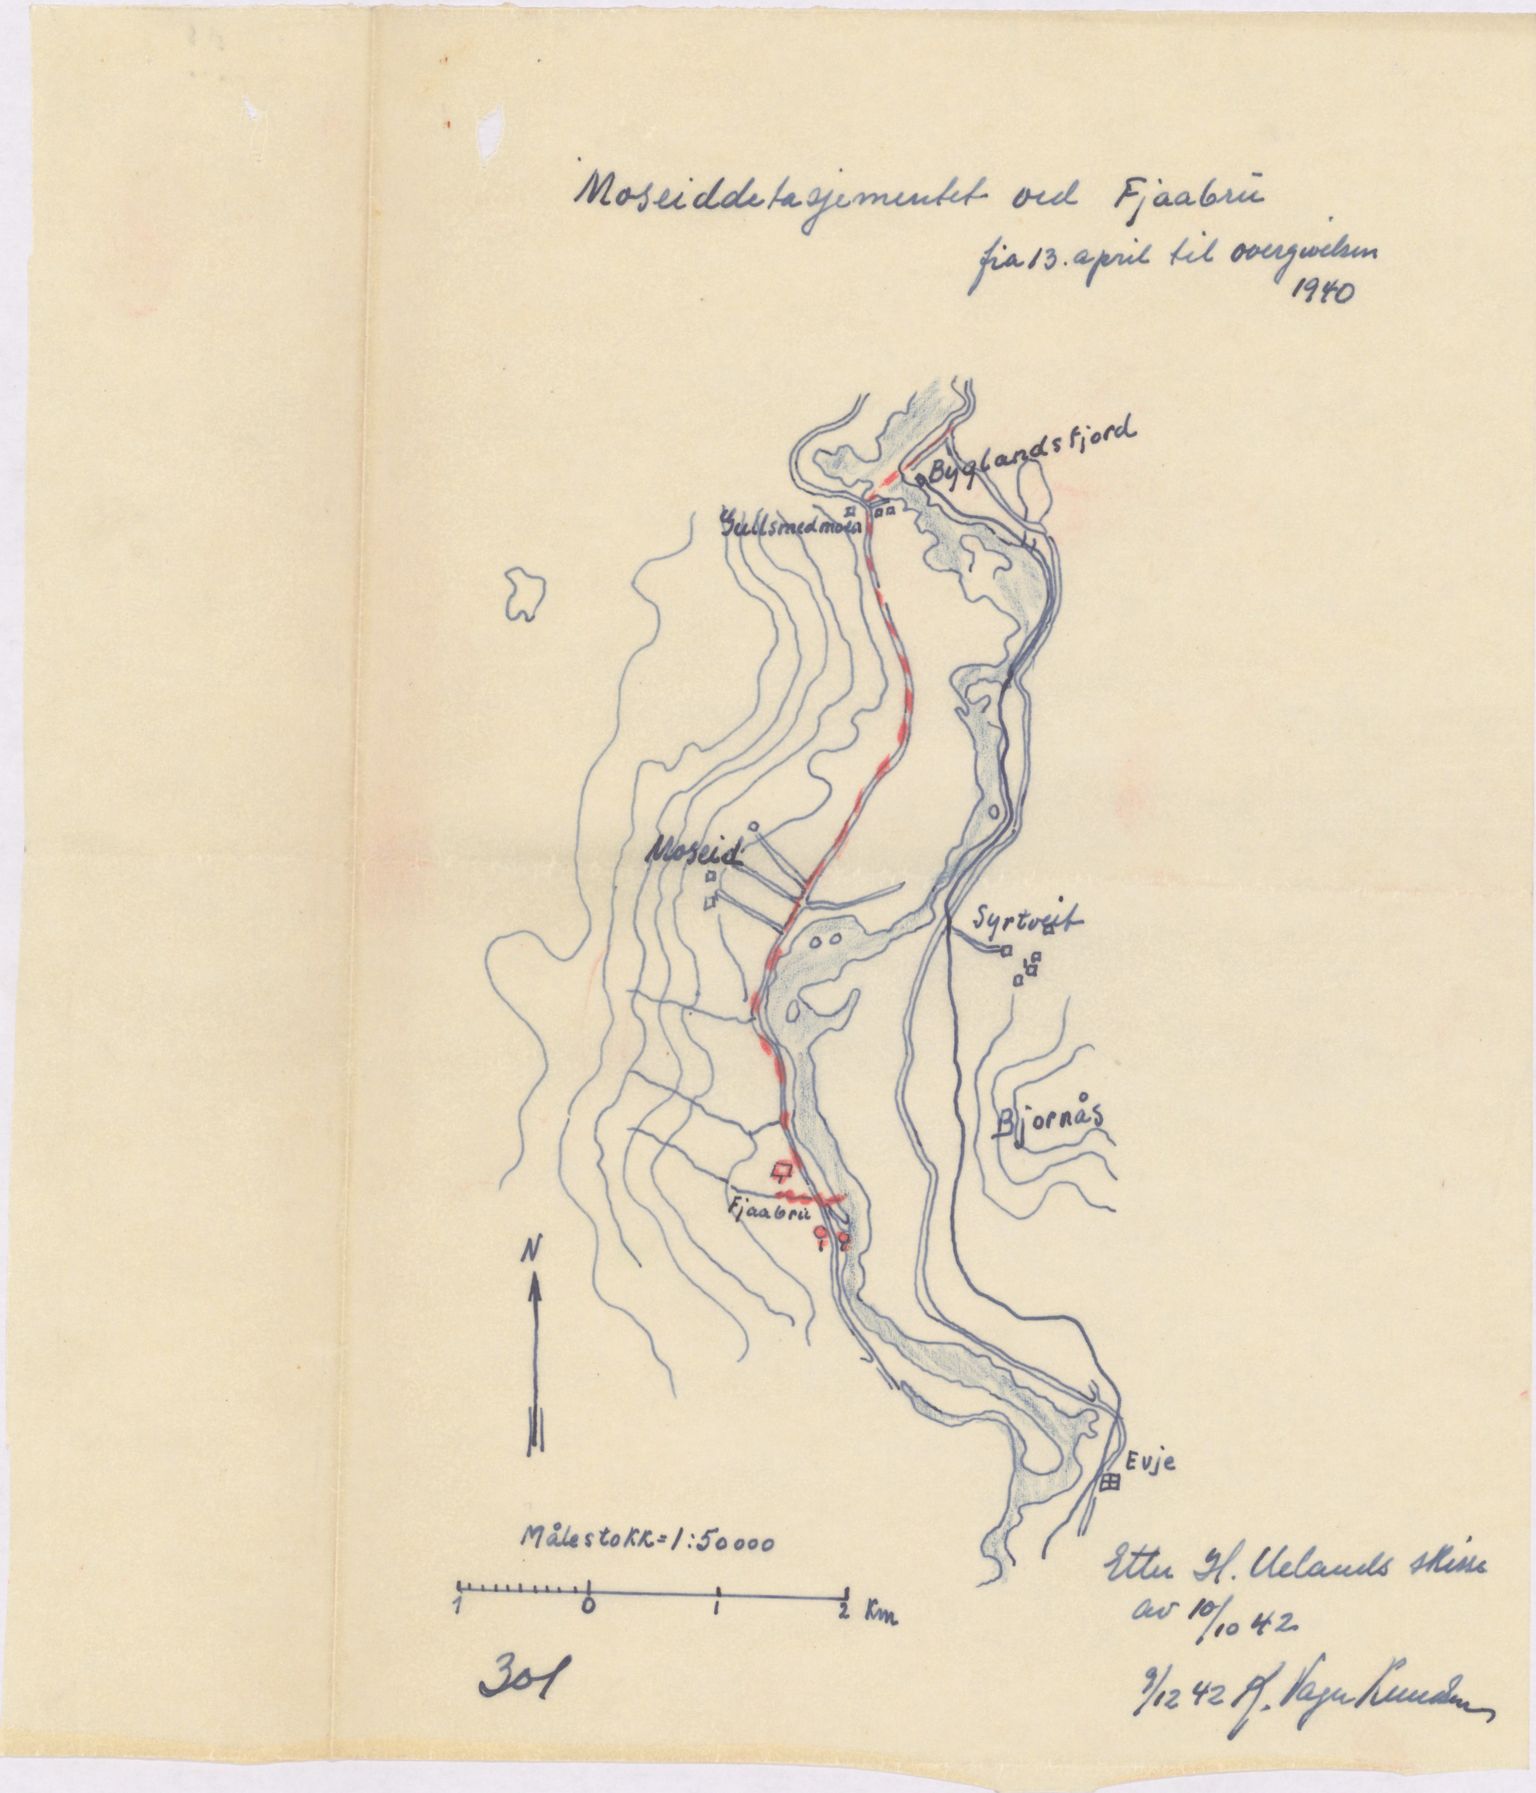 Moseiddetasjementet ved Fjaabrū
fra 13. april til overgivelsen
1940
Byglandsfjord
Gullsmedmoen
Moseid
Syrtveit
Bjørnås
Fjaabrū
N
Evje
Målestokk = 1:50000
1 0 1 2 Km
Etter H. Uelands skisse
av 10/10 42
301
9/12 42 K. Vagn Knudsen